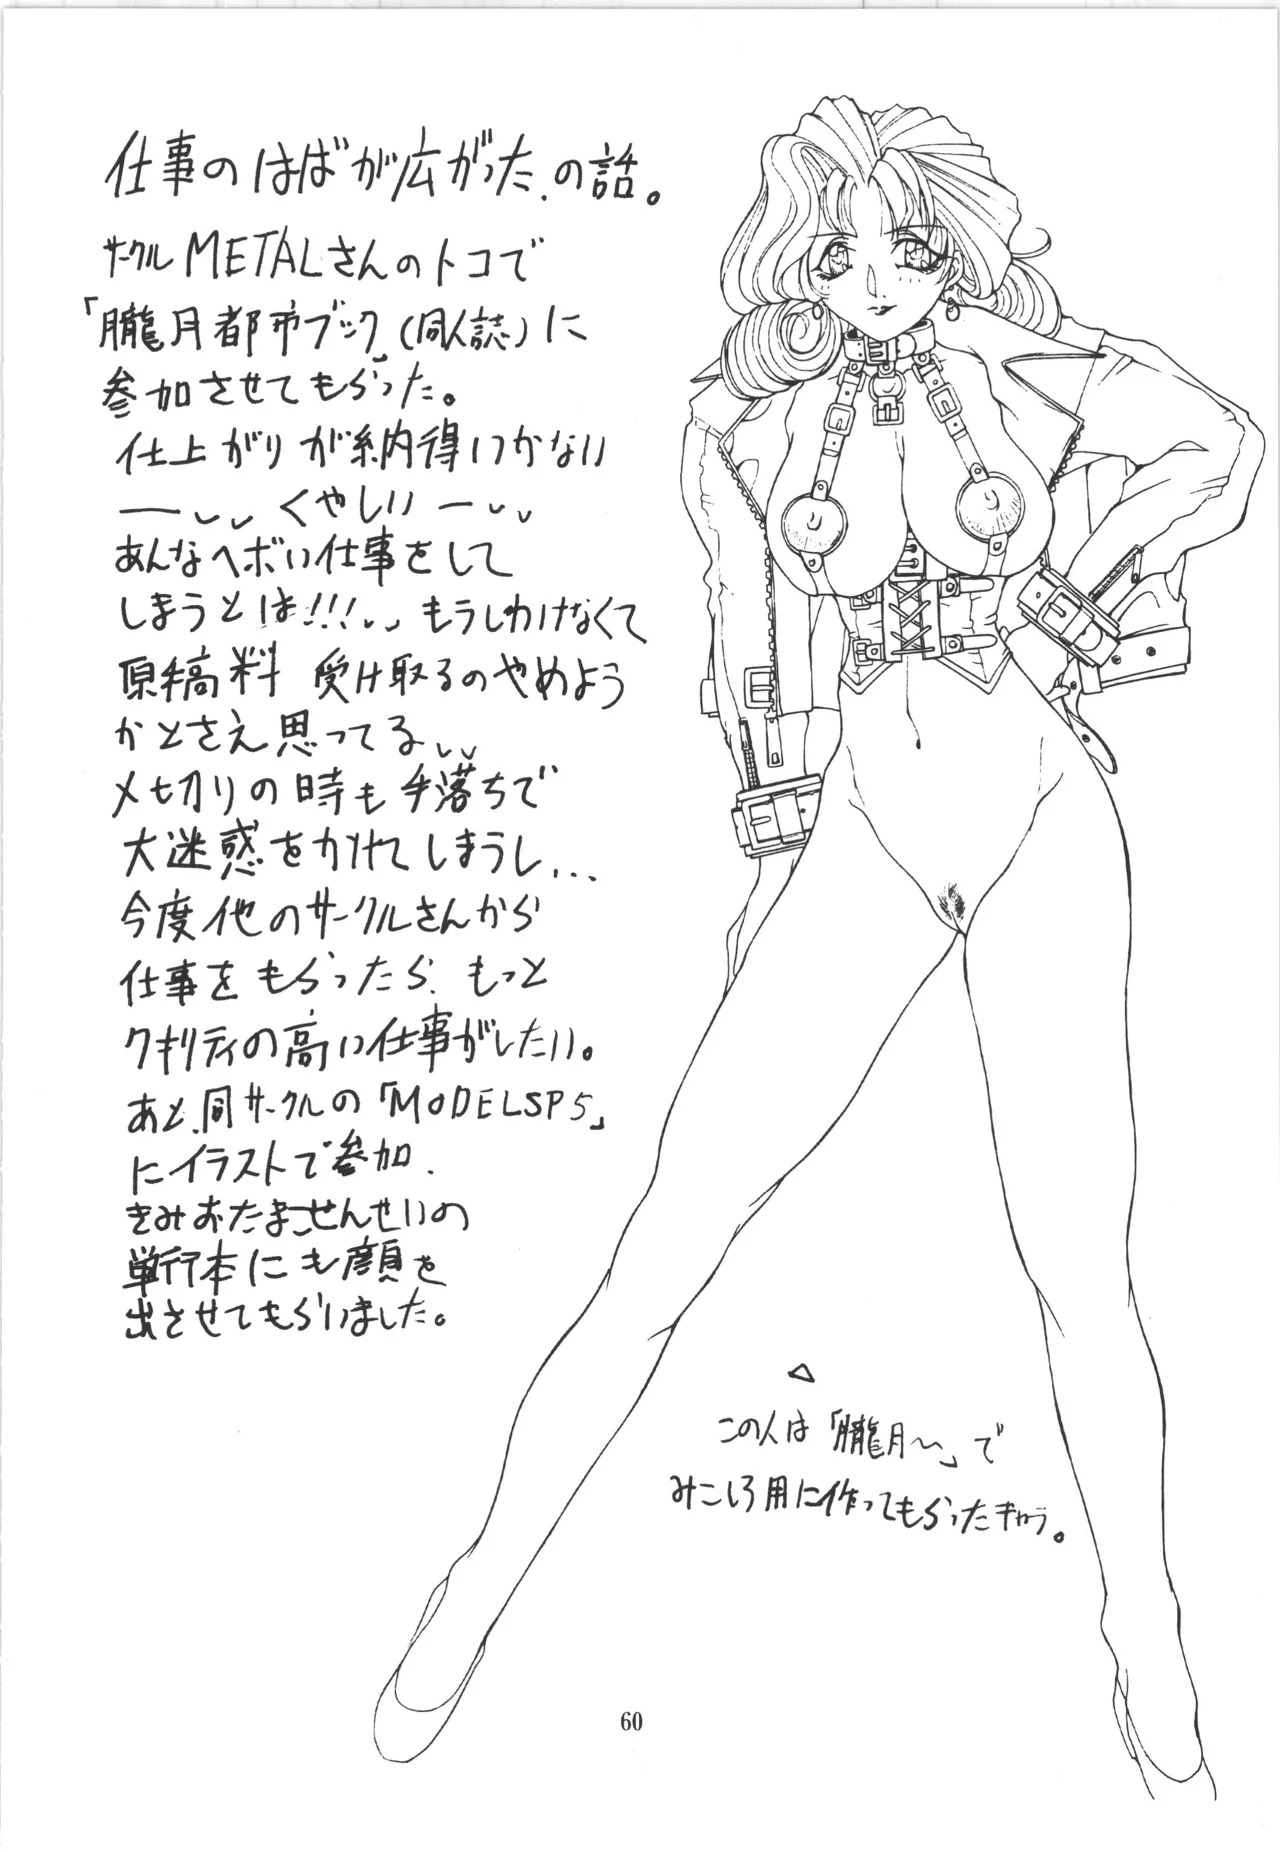 仕事のはばが広がった.の話。
サークルMETALさんのトコで
「朧月都市ブック」(同人誌)に
参加させてもらった。
仕上がりが納得いかない
ー、、くやしいー、、
あんなヘボい仕事をして
しまうとは!!!、、もうしわけなくて
原稿料 受け取るのやめよう
かとさえ思ってる、、
〆切りの時も手落ちで
大迷惑をかけてしまうし...
今度他のサークルさんから
仕事をもらったら.もっと
クオリティの高い仕事がしたい。
あと.同サークルの「MODELSP5」
にイラストで参加.
きみおたまこせんせいの
単行本にも顔を
出させてもらいました。
この人は「朧月〜」で
みこしろ用に作ってもらったキャラ。
60